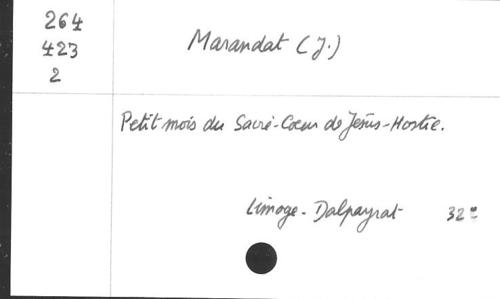 264
423
2
Marandat (J.)
Petit mois du Sacré-Coeur de Jésus-Hostie.
Limoge - Dalpayrat 32°